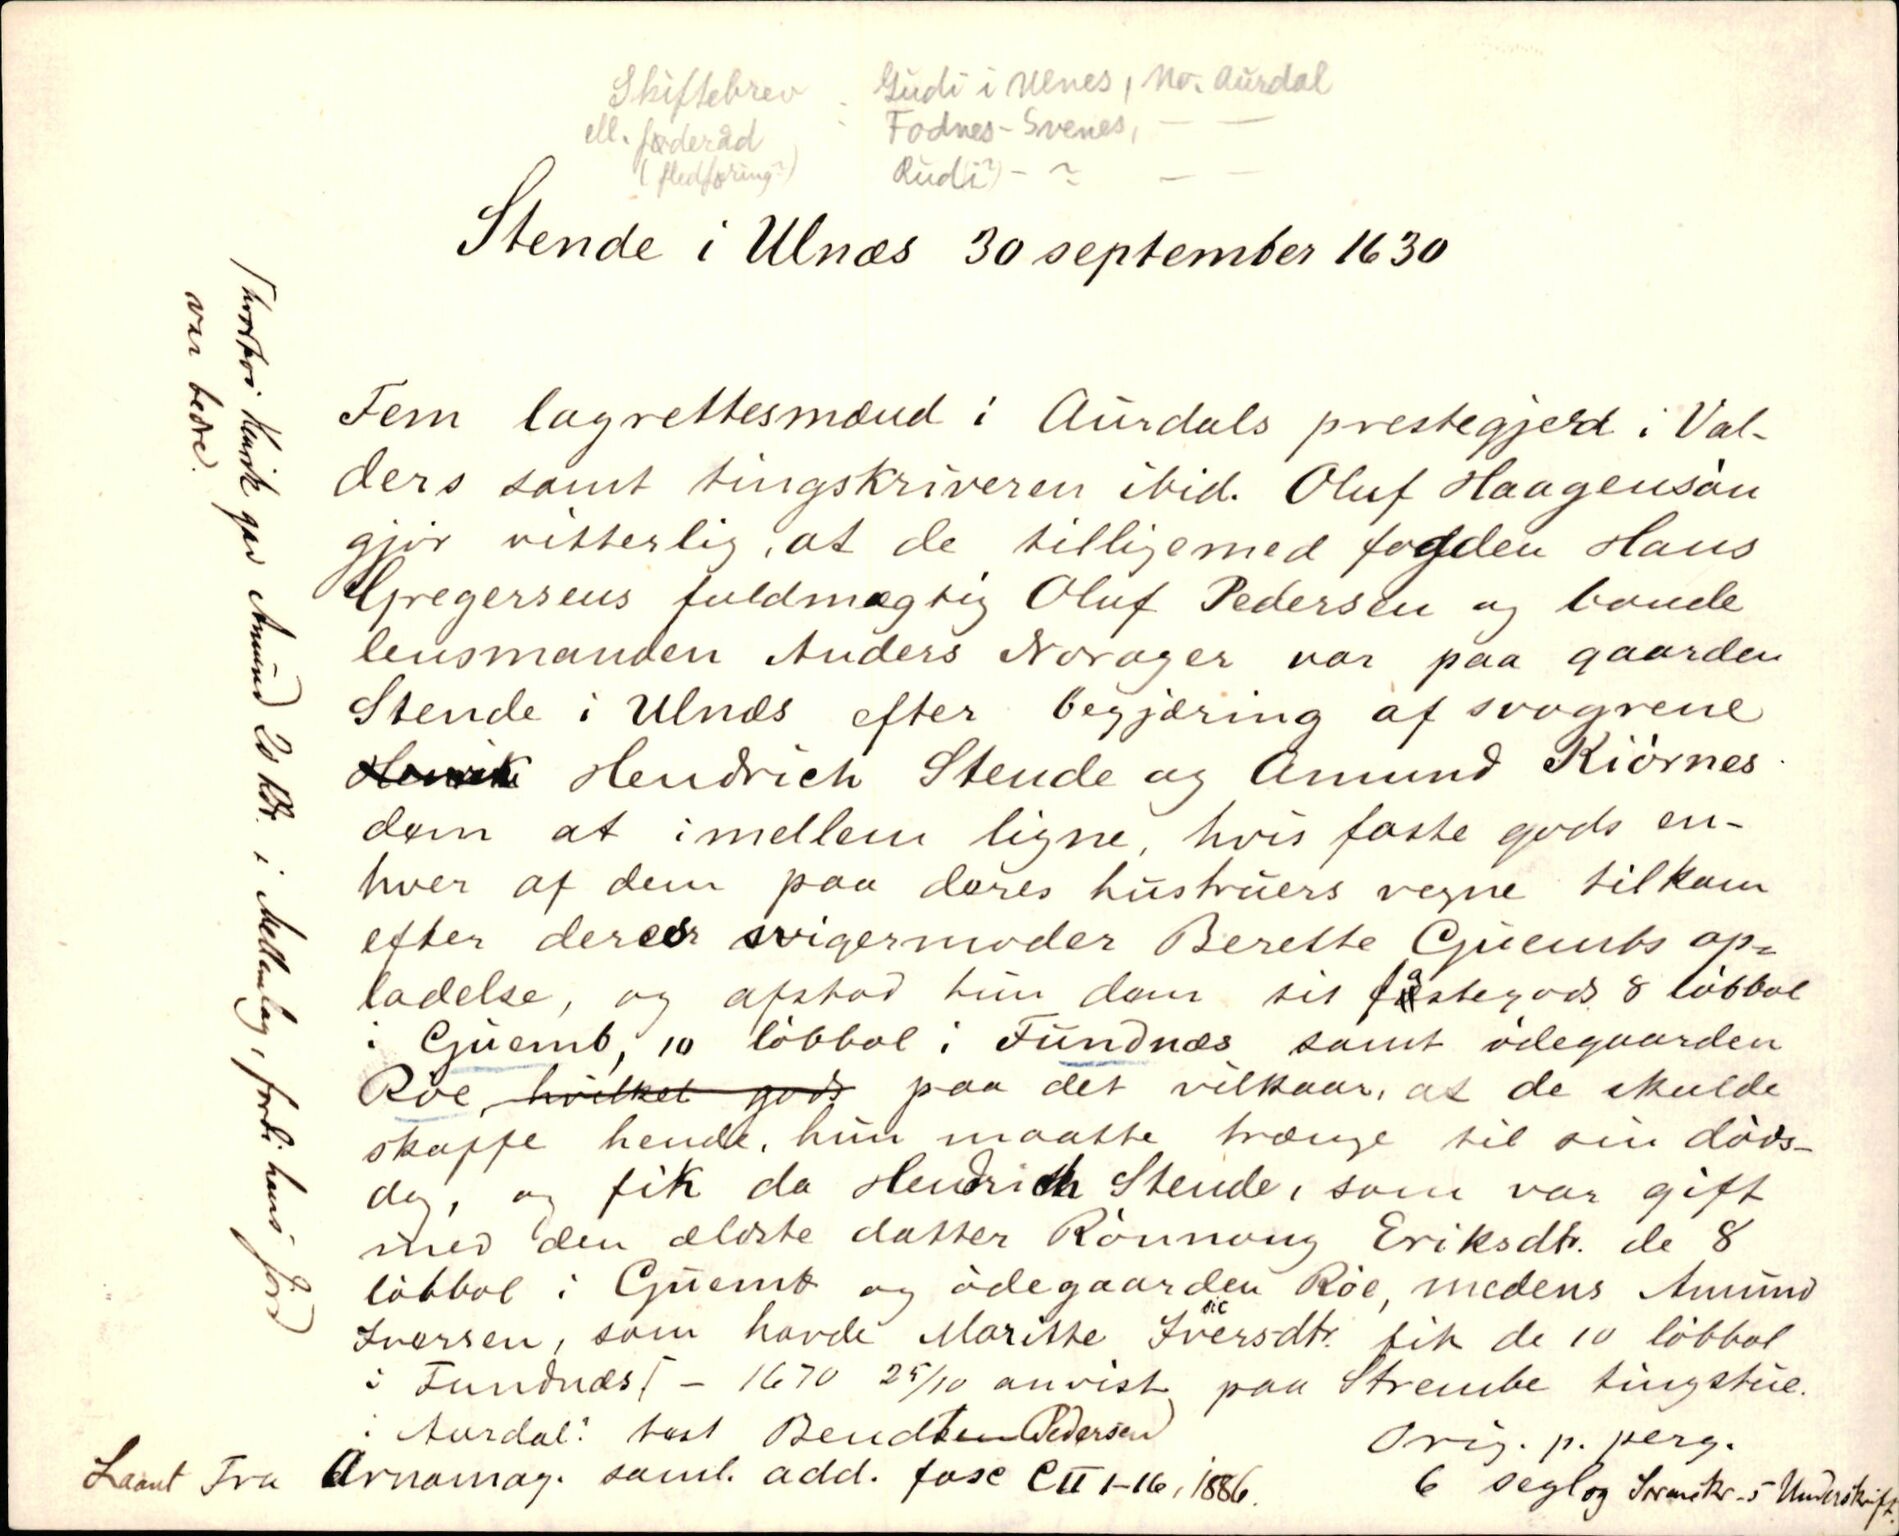 Skiftebrev - Gudi i Ulnes, No. Aurdal
ell. føderåd - Fodnes - Svenes, — —
(fledføring?) Rudi(?) - ~ — —
Stende i Ulnæs 30 september 1630
Fem lagrettesmænd i Aurdals prestegjeld i Val-
ders samt tingskriveren ibid. Oluf Haagensøn
gjør vitterlig, at de tilligemed fogden Hans
Gregersens fuldmægtig Oluf Pedersen og bonde
lensmanden Anders Norager var paa gaarden
Stende i Ulnæs efter begjæring af svogrene
Hendrich Stende og Amund Kiörnes
dem at imellem ligne, hvis faste gods en-
hver af dem paa deres hustruers vegne tilkom
efter deres svigermoder Berette Guembs op-
ladelse, og afstod hun dem sit fastegods 8 löbbol
i Guemb, 10 löbbol i Fundnæs samt ödegaarden
Röe, hvilket gods paa det vilkaar, at de skulde
skaffe hende, hun maatte trænge til sin döds-
dag, og fik da Hendrich Stende, som var gift
med den ældste datter Rönnoug Eriksdtr. de 8
löbbol i Guemb og ödegaarden Röe, medens Amund
Iversen, som havde Maritte Iversdtr. fik de 10 löbbol
sic
i Fundnæs ſ - 1670 25/10 anvist paa Strembe tingstue.
i Aurdal: test Bendt Pedersen
Orig. p. perg.
Laant Fra Arnamag. saml. add. fasc C II 1-16, 1886.
6 segl og Sorenskr. - 5 Underskrift.
ſ hvorfor Henrik gav Amund 20 rdr. i Mellemlag, fordi hans jord
var bedre.